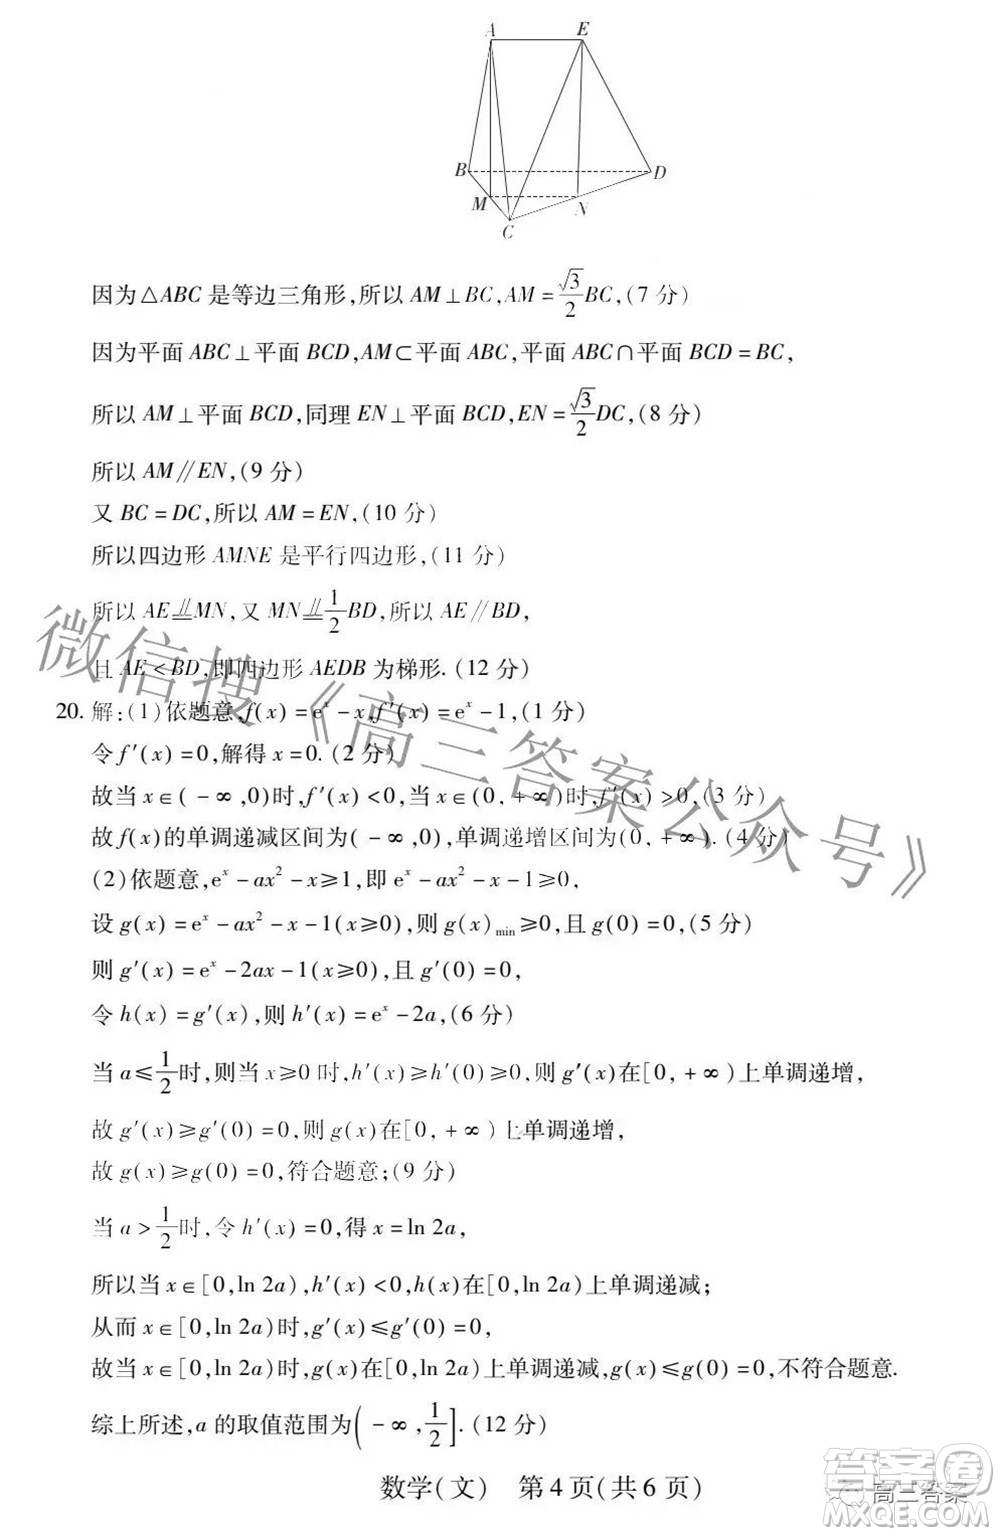 A E
B D
M N
C
因为△ABC 是等边三角形,所以 AM⊥BC,AM=$\frac{\sqrt{3}}{2}$BC,(7 分)
因为平面 ABC⊥平面 BCD,AM⊂平面 ABC,平面 ABC∩平面 BCD=BC,
所以 AM⊥平面 BCD,同理 EN⊥平面 BCD,EN=$\frac{\sqrt{3}}{2}$DC,(8 分)
所以 AM∥EN,(9 分)
又 BC=DC,所以 AM=EN,(10 分)
所以四边形 AMNE 是平行四边形,(11 分)
所以 AE⫫MN,又 MN⫫$\frac{1}{2}$BD,所以 AE∥BD,
且 AE<BD,即四边形 AEDB 为梯形. (12 分)
20. 解:(1)依题意,f(x)=eˣ-x,f′(x)=eˣ-1,(1 分)
令 f′(x)=0,解得 x=0. (2 分)
故当 x∈(-∞,0)时,f′(x)<0,当 x∈(0,+∞)时,f′(x)>0,(3 分)
故 f(x)的单调递减区间为(-∞,0),单调递增区间为(0,+∞). (4 分)
(2)依题意,eˣ-ax²-x≥1,即 eˣ-ax²-x-1≥0,
设 g(x)=eˣ-ax²-x-1(x≥0),则 g(x)min≥0,且 g(0)=0,(5 分)
则 g′(x)=eˣ-2ax-1(x≥0),且 g′(0)=0,
令 h(x)=g′(x),则 h′(x)=eˣ-2a,(6 分)
当 a≤$\frac{1}{2}$时,则当 x≥0 时,h′(x)≥h′(0)≥0,则 g′(x)在[0,+∞)上单调递增,
故 g′(x)≥g′(0)=0,则 g(x)在[0,+∞)上单调递增,
故 g(x)≥g(0)=0,符合题意;(9 分)
当 a>$\frac{1}{2}$时,令 h′(x)=0,得 x=ln 2a,
所以当 x∈[0,ln 2a),h′(x)<0,h(x)在[0,ln 2a)上单调递减;
从而 x∈[0,ln 2a)时,g′(x)≤g′(0)=0,
故当 x∈[0,ln 2a)时,g(x)在[0,ln 2a)上单调递减,g(x)≤g(0)=0,不符合题意.
综上所述,a 的取值范围为(-∞,$\frac{1}{2}$]. (12 分)
数学(文) 第 4 页(共 6 页)
微信搜《高三答案公众号》
答案圈
高三答案
MXQE.COM